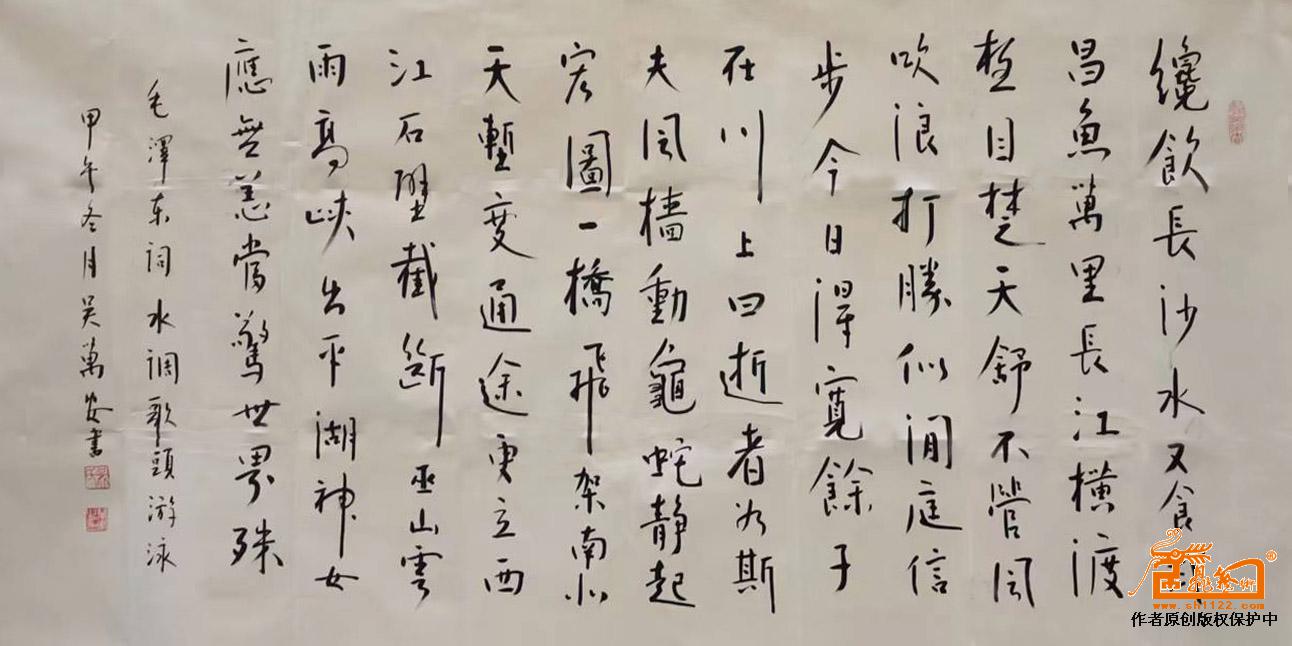 纔飲長沙水又食武
昌魚萬里長江橫渡
極目楚天舒不管風
吹浪打勝似閒庭信
步今日得寬餘子
在川上曰逝者如斯
夫風檣動龜蛇静起
宏圖一橋飛架南北
天塹變通途更立西
江石壁截斷巫山雲
雨高峡出平湖神女
應無恙當驚世界殊
毛澤东詞水調歌頭游泳
甲午冬月吴萬安書
www.sh1122.com
作者原创版权保护中